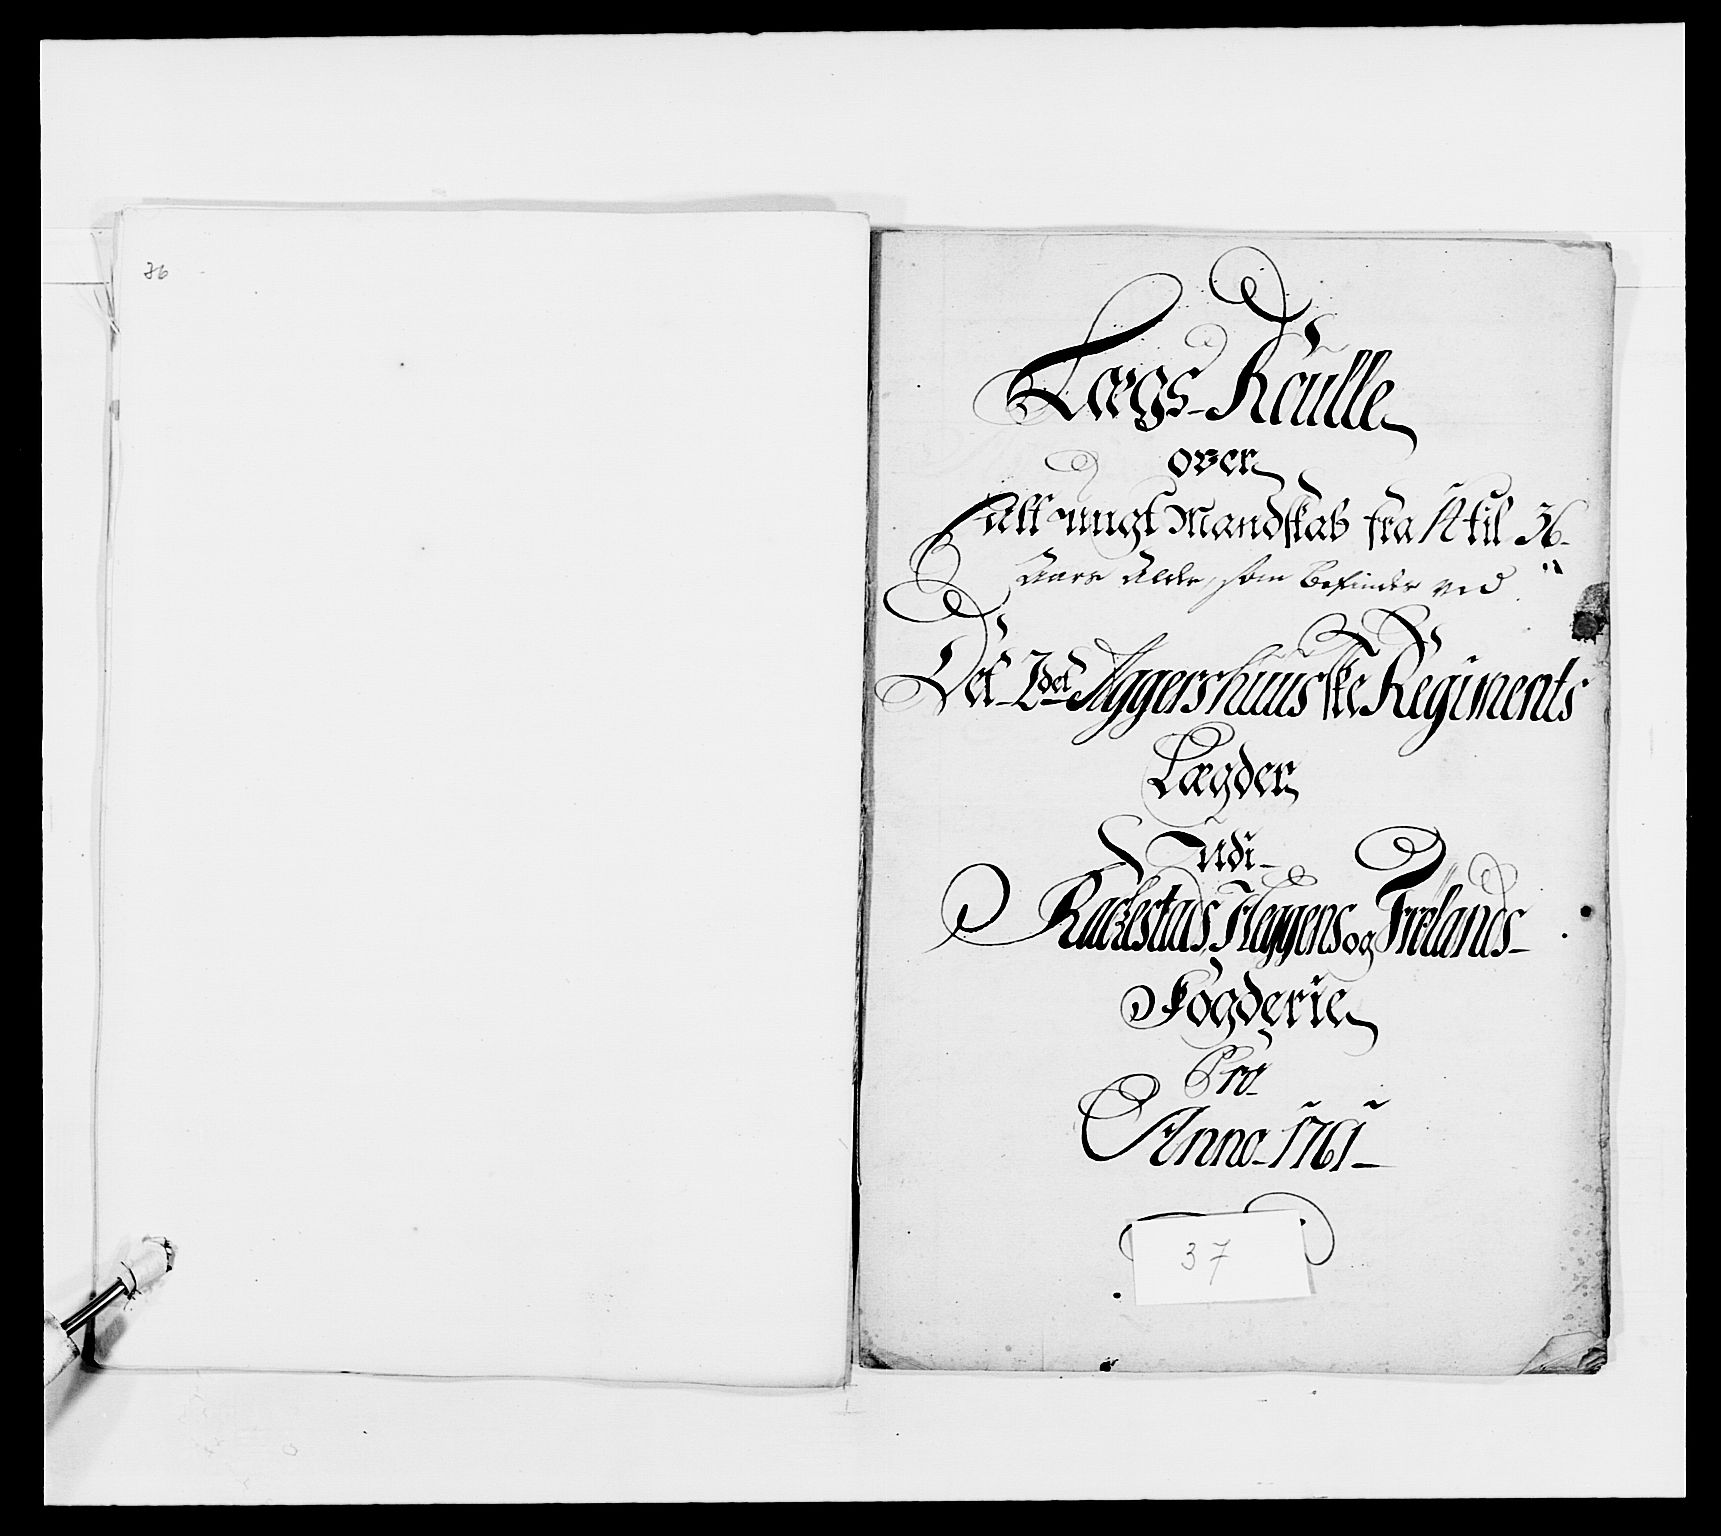 36
Lægs-Roulle
over
alt ungt Mandskab fra 12 til 36
Aars Alder, som befinder ved
Det 2det Aggershuuske Regiments
Lægder
Udi
Rackestads, Heggens og Frølands
Fogderie
Pro
Anno 1761
37